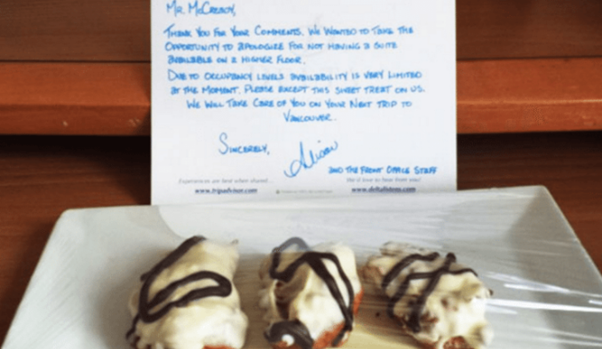 Mr. McCready,
Thank You For Your Comments. We Wanted to Take the
Opportunity to apologize For Not Having a Suite
available on a Higher Floor.
Due to Occupancy Levels availability is very limited
at the Moment. Please Except this Sweet Treat on us.
We Will Take Care of You on Your Next Trip to
Vancouver.
Sincerely,
Alison
and the Front Office Staff
Experiences are best when shared...
www.tripadvisor.com
We'd love to hear from you!
www.deltahotels.com